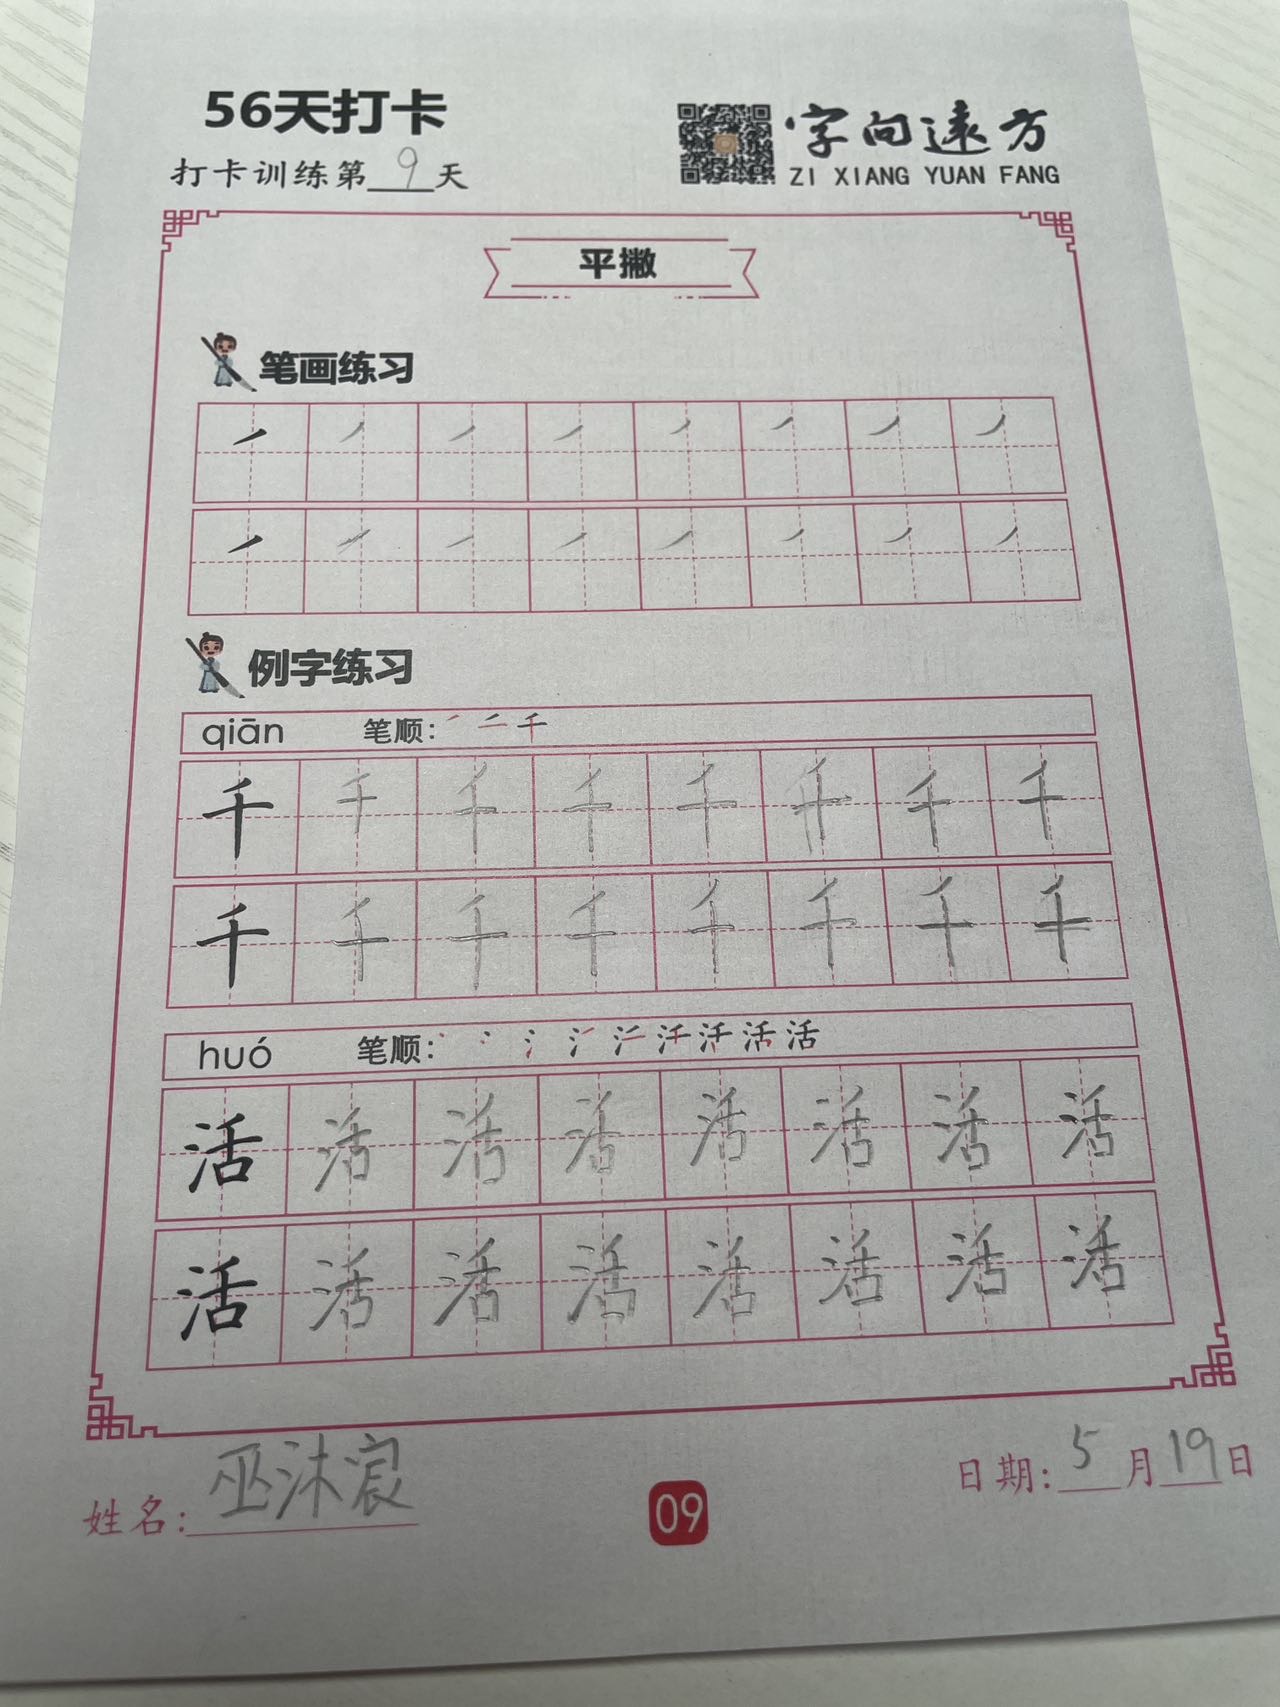 56天打卡
字向远方
打卡训练第9天
ZI XIANG YUAN FANG
平撇
笔画练习
㇒ ㇒ ㇒ ㇒ ㇒ ㇒ ㇒ ㇒
㇒ ㇒ ㇒ ㇒ ㇒ ㇒ ㇒ ㇒
例字练习
qiān 笔顺: ㇒ 二 千
千 千 千 千 千 千 千 千
千 千 千 千 千 千 千 千
huó 笔顺: 活
活 活 活 活 活 活 活 活
活 活 活 活 活 活 活 活
姓名: 巫沐宸
09
日期: 5月19日